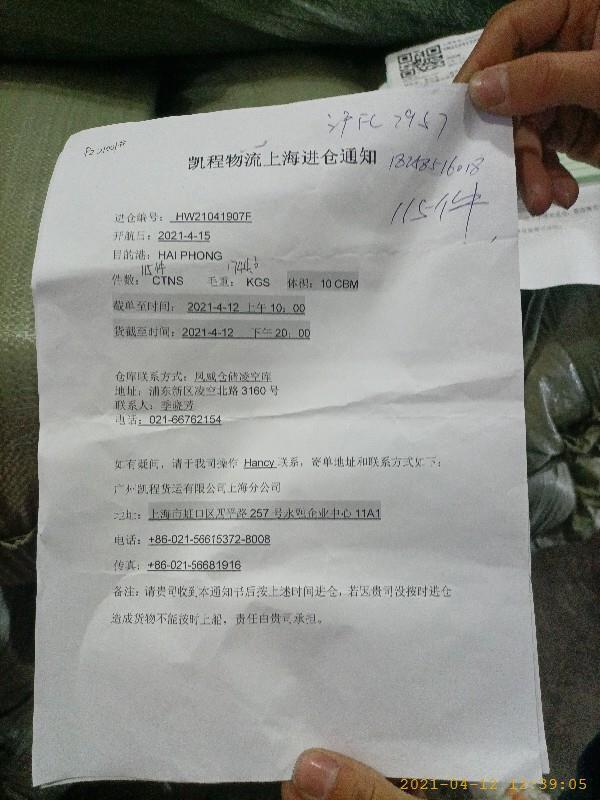 沪FC7957
凯程物流上海进仓通知
115件
进仓编号: HW21041907F
开航日: 2021-4-15
目的港: HAI PHONG
115件
件数: CTNS 毛重: KGS 体积: 10 CBM
截单至时间: 2021-4-12 上午 10：00
货截至时间: 2021-4-12 下午 20：00
仓库联系方式: 凤威仓储凌空库
地址: 浦东新区凌空北路 3160 号
联系人: 季晓芳
电话: 021-66762154
如有疑问，请于我司操作 Hancy 联系，寄单地址和联系方式如下:
广州凯程货运有限公司上海分公司
地址: 上海市虹口区四平路 257 号永融企业中心 11A1
电话: +86-021-56615372-8008
传真: +86-021-56681916
备注: 请贵司收到本通知书后按上述时间进仓，若因贵司没按时进仓
造成货物不能按时上船，责任由贵司承担。
2021-04-12 12:39:05